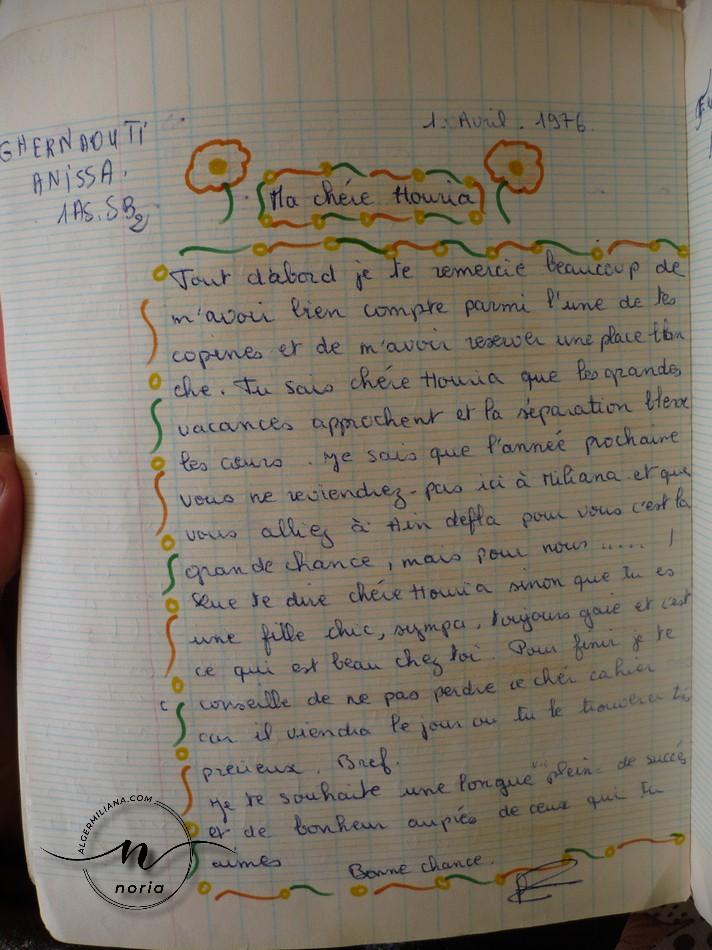 GHERNAOUTI
ANISSA.
1AS.SB2
1. Avril. 1976.
Ma chére Houria
Tout d'abord je te remercie beaucoup de
m'avoir bien compte parmi l'une de tes
copines et de m'avoir reserver une place blan
che. Tu sais chére Houria que les grandes
vacances approchent et la séparation blesse
les cœurs. Je sais que l'année prochaine
vous ne reviendrez-pas ici à Miliana et que
vous alliez à Ain defla pour vous c'est la
grande chance, mais pour nous ..... !
Que te dire chére Houria sinon que tu es
une fille chic, sympa, toujours gaie et c'est
ce qui est beau chez toi. Pour finir je te
conseille de ne pas perdre ce chér cahier
car il viendra le jour ou tu le trouvera
précieux. Bref.
Je te souhaite une longue pleine de succés
et de bonheur auprés de ceux qui tu
aimes
Bonne chance.
ALGERMILIANA.COM
n
noria